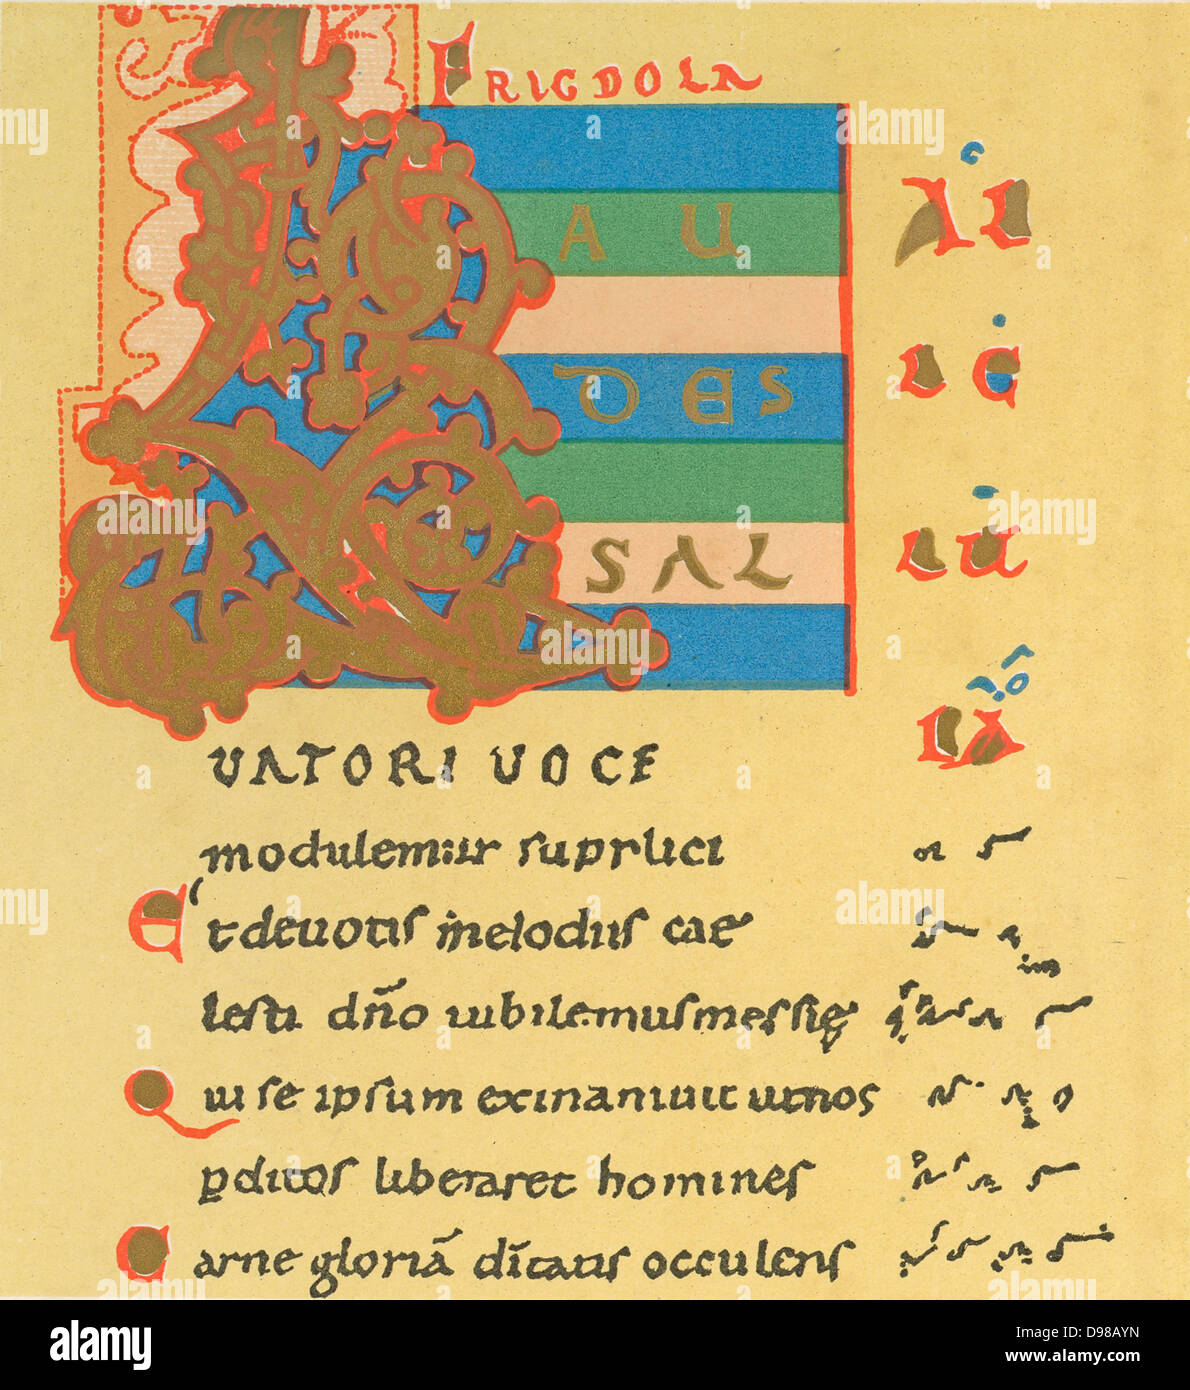 FRIGDOLA
AU
DES
SAL
UATORI UOCE
modulemur supplici
Et deuotis melodiis cae
lesti dño iubilemus messię
Qui se ipsum exinaniuit ut nos
pditos liberaret homines
Carne gloriā dītatis occulens
alamy
Image ID: D98AYN
www.alamy.com